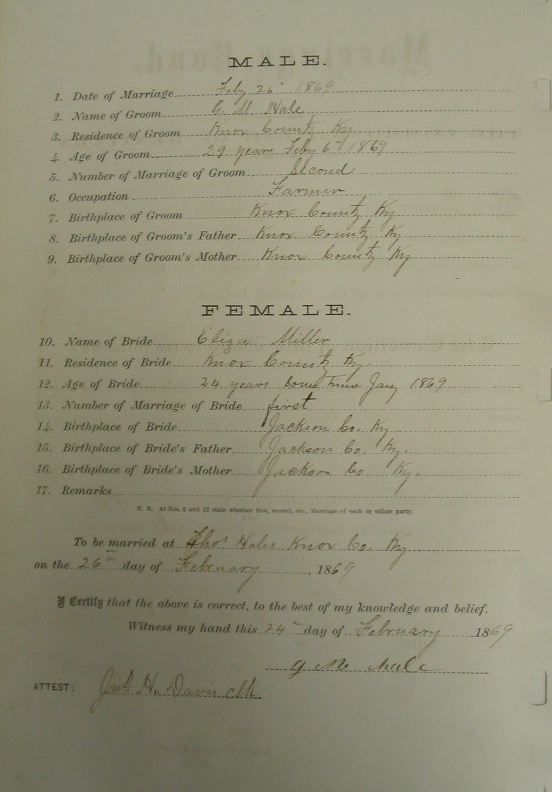 MALE.
1. Date of Marriage Feby 26th 1869
2. Name of Groom G. M. Hale
3. Residence of Groom Knox County Ky
4. Age of Groom 29 years Feby 6th 1869
5. Number of Marriage of Groom Second
6. Occupation Farmer
7. Birthplace of Groom Knox County Ky
8. Birthplace of Groom's Father Knox County Ky
9. Birthplace of Groom's Mother Knox County Ky
FEMALE.
10. Name of Bride Eliza Miller
11. Residence of Bride Knox County Ky.
12. Age of Bride 24 years Sometime Jany 1869
13. Number of Marriage of Bride first
14. Birthplace of Bride Jackson Co. Ky
15. Birthplace of Bride's Father Jackson Co. Ky.
16. Birthplace of Bride's Mother Jackson Co Ky.
17. Remarks
N. B. At Nos. 5 and 13 state whether first, second, etc., Marriage of each or either party.
To be married at Thos Hales Knox Co. Ky
on the 26th day of February, 1869
I Certify that the above is correct, to the best of my knowledge and belief.
Witness my hand this 24 day of February 1869
G. M. Hale
ATTEST: H. Davis clk.